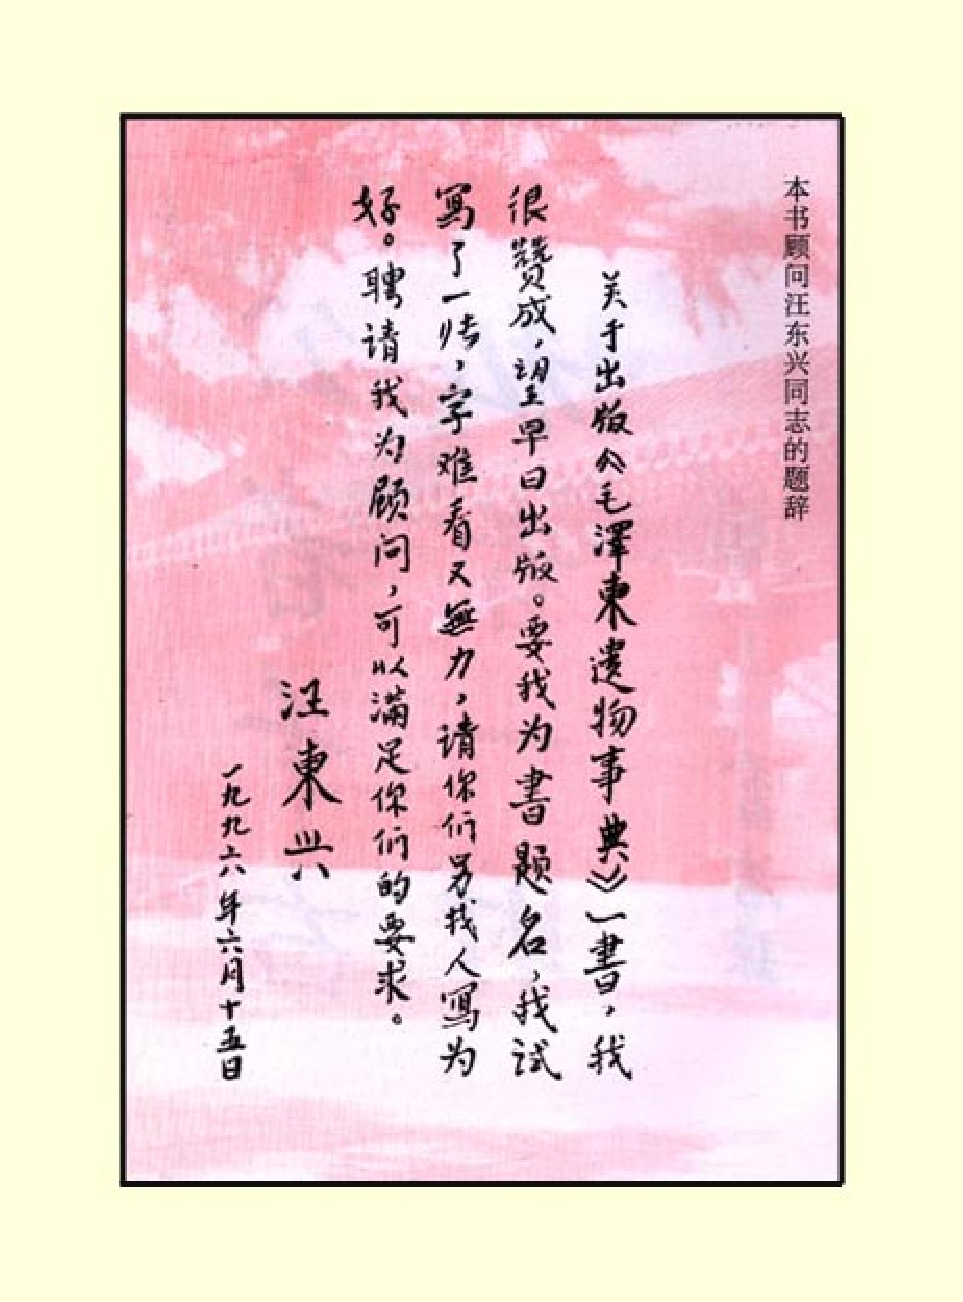 本书顾问汪东兴同志的题辞
关于出版《毛澤東遺物事典》一書，我
很贊成，望早日出版。要我为書题名，我试
寫了一张，字难看又無力，请你们另找人寫为
好。聘请我为顾问，可以滿足你们的要求。
汪東兴
一九九六年六月十五日